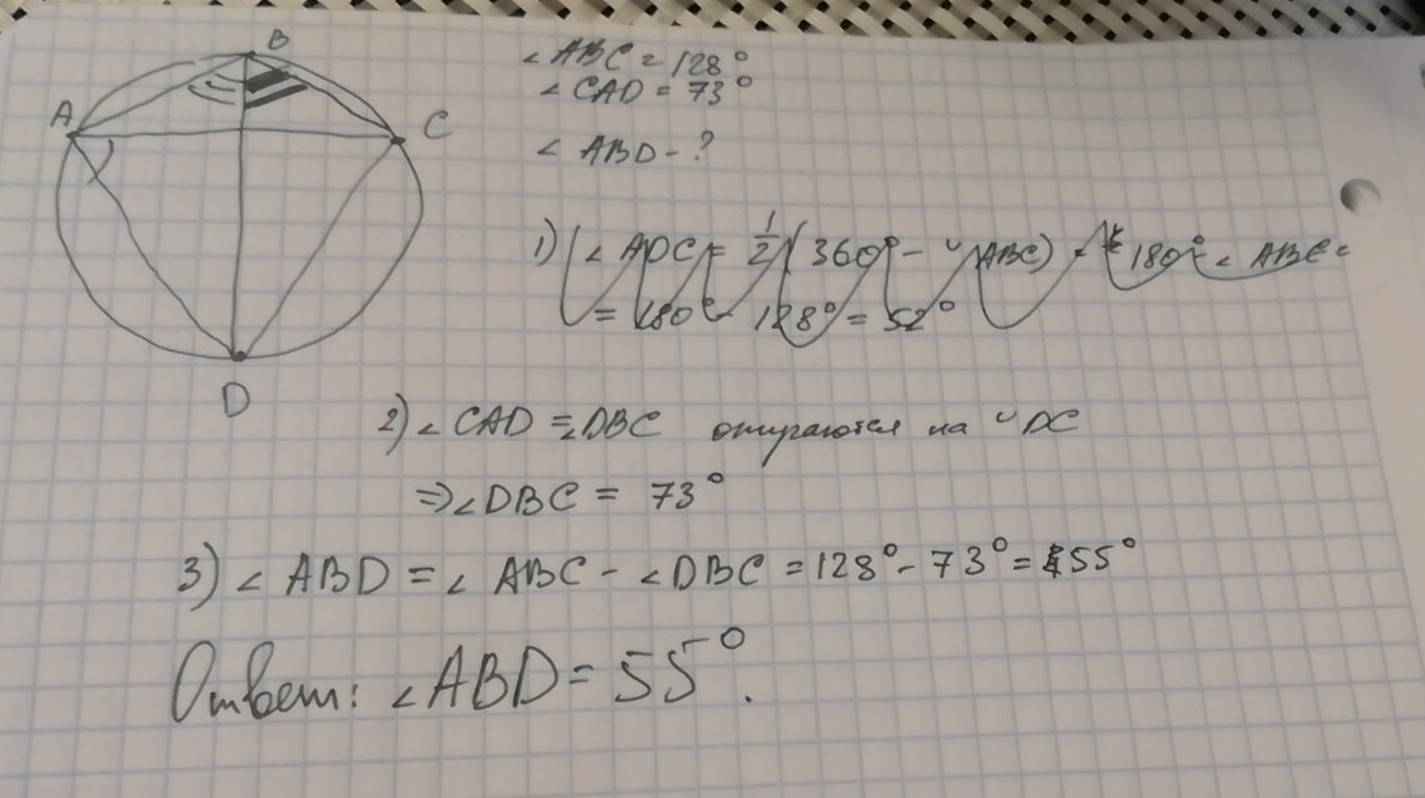 B
A
C
D
∠ABC = 128°
∠CAD = 73°
∠ABD - ?
1) ∠ADC = 1/2 (360° - ◡ABC) = 180° - ∠ABC =
= 180° - 128° = 52°
2) ∠CAD = ∠DBC опираются на ◡DC
⇒ ∠DBC = 73°
3) ∠ABD = ∠ABC - ∠DBC = 128° - 73° = 55°
Ответ: ∠ABD = 55°.